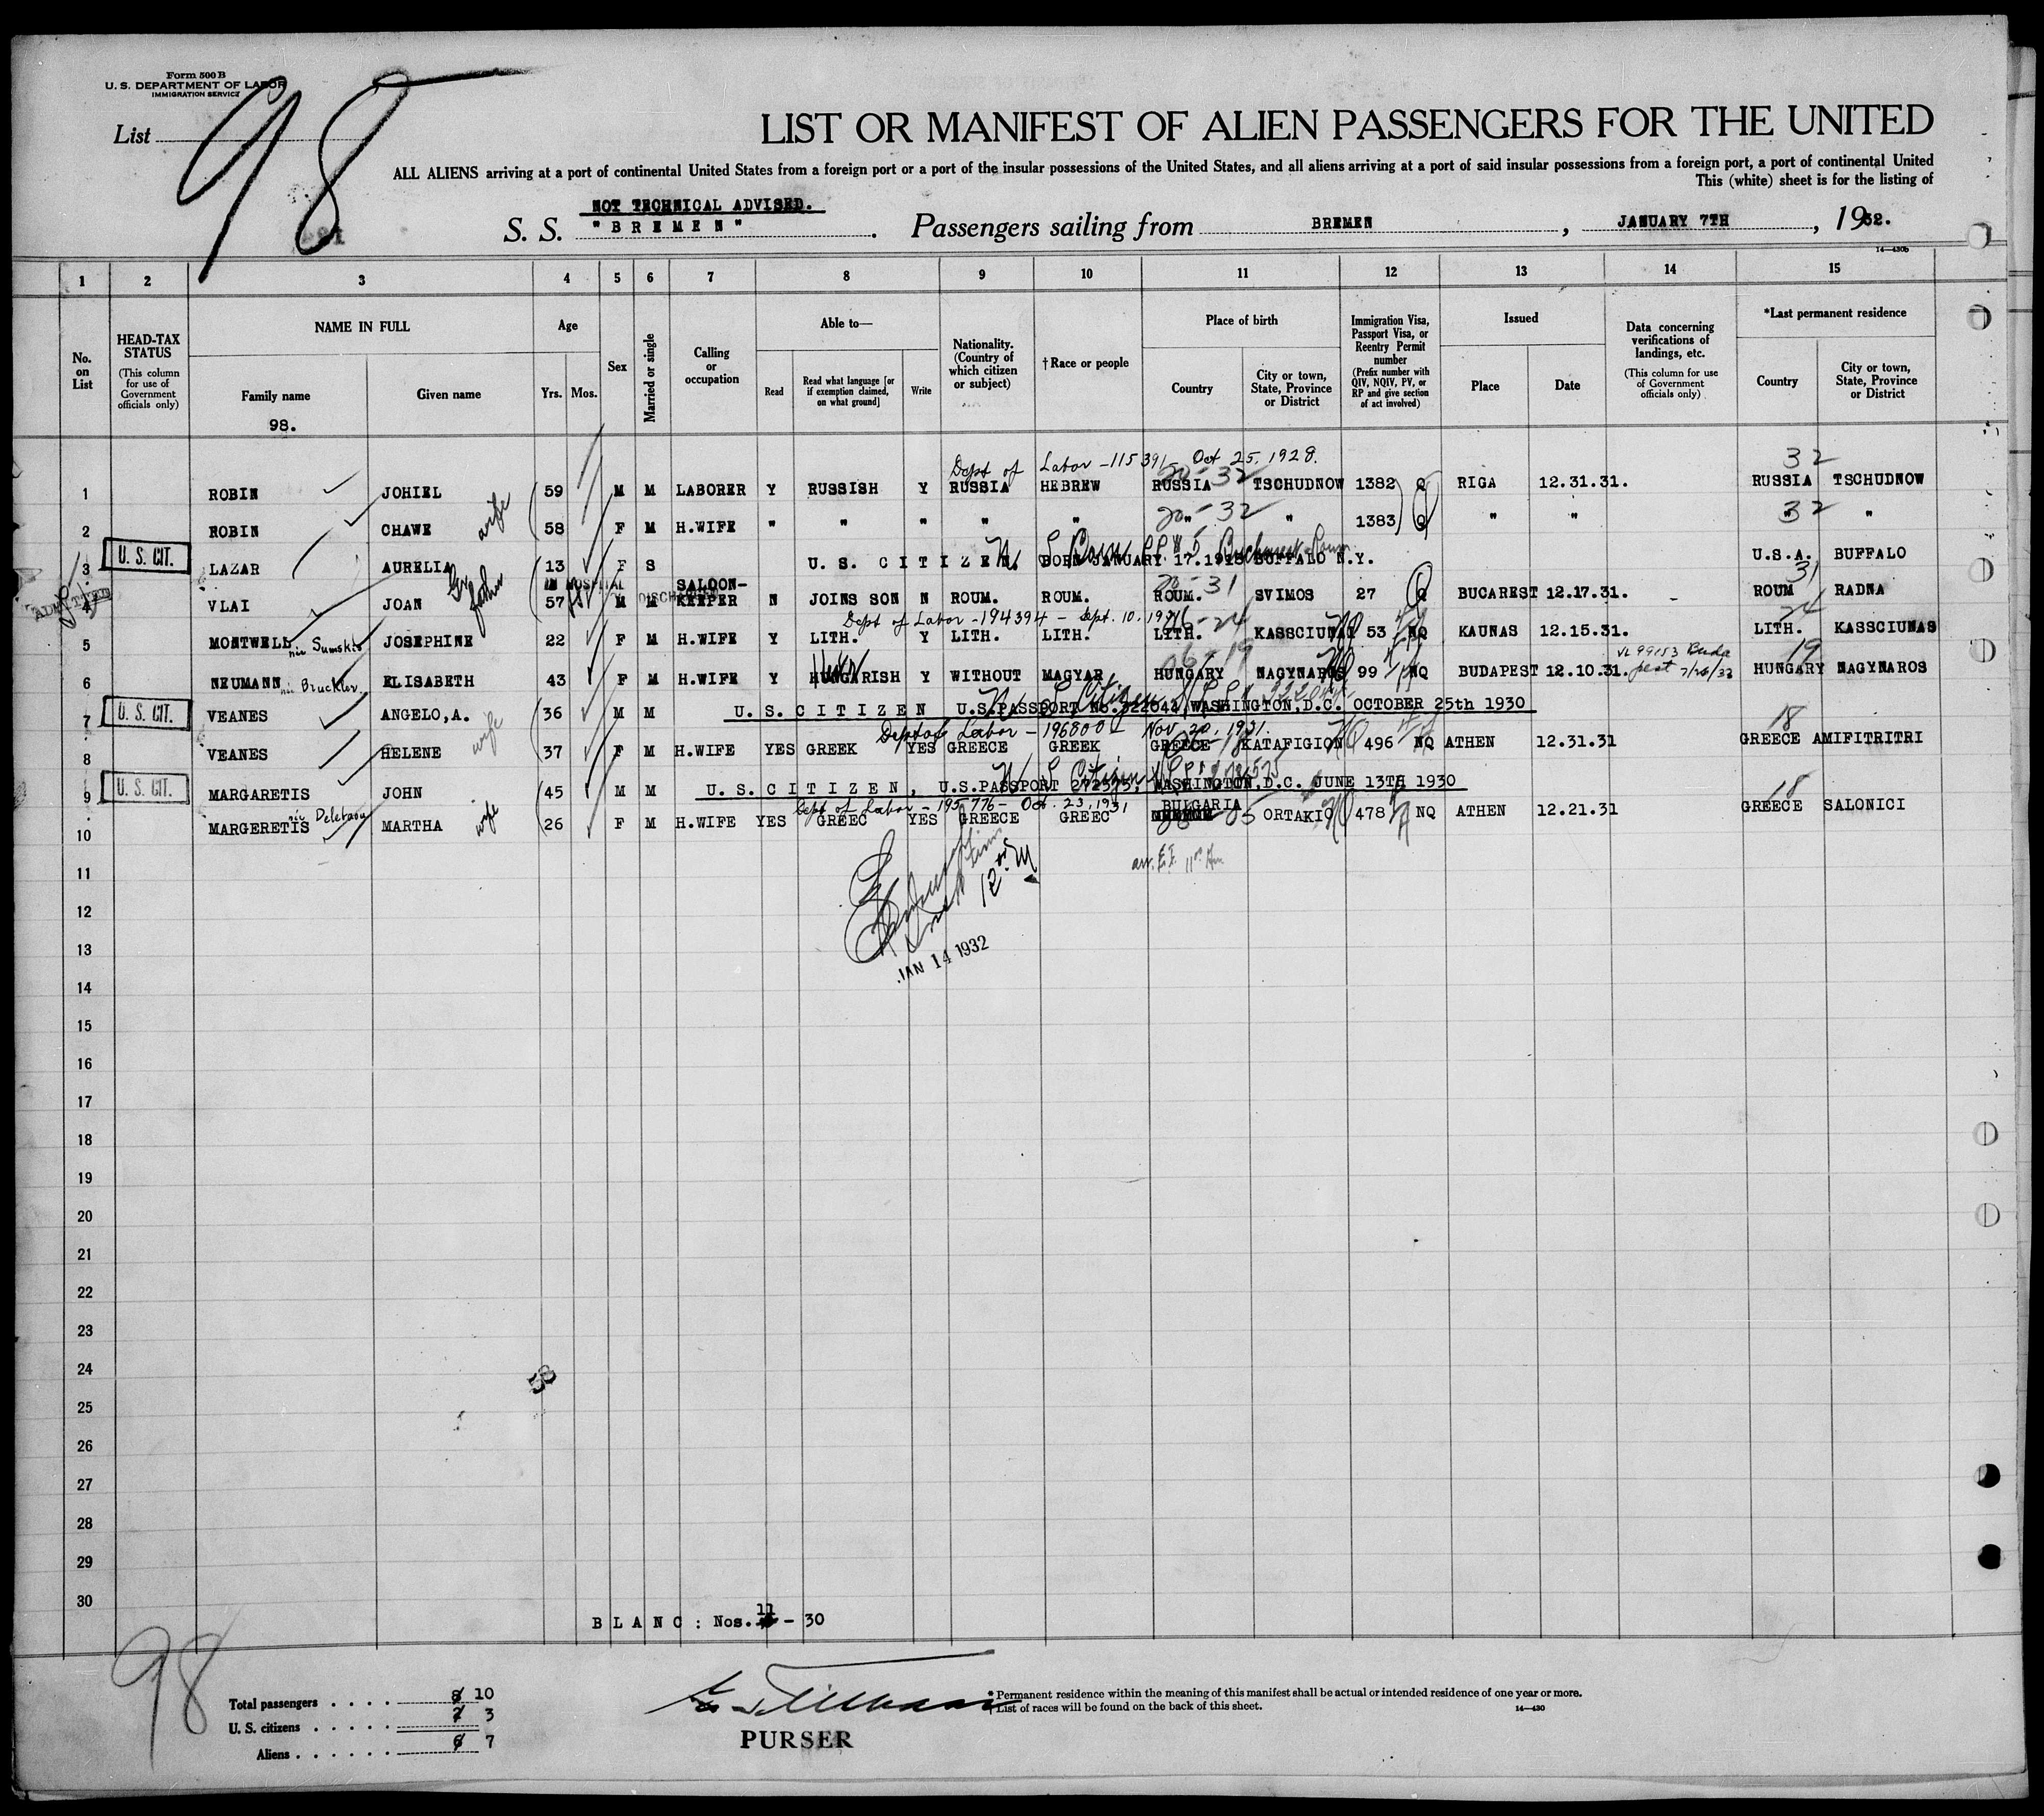 Form 500 B
U. S. DEPARTMENT OF LABOR
IMMIGRATION SERVICE
List 98
LIST OR MANIFEST OF ALIEN PASSENGERS FOR THE UNITED
ALL ALIENS arriving at a port of continental United States from a foreign port or a port of the insular possessions of the United States, and all aliens arriving at a port of said insular possessions from a foreign port, a port of continental United
This (white) sheet is for the listing of
NOT TECHNICAL ADVISED.
S. S. "BREMEN". Passengers sailing from BREMEN, JANUARY 7TH, 1932.
14—430b
1 2 3 4 5 6 7 8 9 10 11 12 13 14 15
No. on List
HEAD-TAX STATUS (This column for use of Government officials only)
NAME IN FULL
Family name
Given name
98.
Age
Yrs. Mos.
Sex
Married or single
Calling or occupation
Able to—
Read
Read what language [or if exemption claimed, on what ground]
Write
Nationality. (Country of which citizen or subject)
† Race or people
Place of birth
Country
City or town, State, Province or District
Immigration Visa, Passport Visa, or Reentry Permit number (Prefix number with QIV, NQIV, PV, or RP and give section of act involved)
Issued
Place
Date
Data concerning verifications of landings, etc. (This column for use of Government officials only)
*Last permanent residence
Country
City or town, State, Province or District
Dept of Labor - 115391 - Oct 25, 1928. 32
1 ROBIN JOHIEL 59 M M LABORER Y RUSSISH Y RUSSIA HEBREW RUSSIA TSCHUDNOW 1382 Q RIGA 12.31.31. RUSSIA TSCHUDNOW
2 ROBIN CHAWE wife 58 F M H.WIFE " " " " " " " 1383 Q " " 32 "
3 U. S. CIT. LAZAR AURELIA 13 F S U. S. CITIZEN, BORN JANUARY 17.1918 BUFFALO N.Y. U.S.A. BUFFALO
ADMITTED IN HOSPITAL DISCHARGED 31
4 VLAI JOAN father 57 M M SALOON-KEEPER N JOINS SON N ROUM. ROUM. ROUM. SVIMOS 27 Q BUCAREST 12.17.31. ROUM RADNA
Dept of Labor - 194394 - Sept. 10, 1931 24
5 MONTWELL née Sumskis JOSEPHINE 22 F M H.WIFE Y LITH. Y LITH. LITH. LITH. KASSCIUNAI 53 NQ KAUNAS 12.15.31. LITH. KASSCIUNAS
6 NEUMANN née Bruckler ELISABETH 43 F M H.WIFE Y HUNGARISH Y WITHOUT MAGYAR HUNGARY NAGYNAROS 99 NQ BUDAPEST 12.10.31. HUNGARY NAGYNAROS
7 U. S. CIT. VEANES ANGELO,A. 36 M M U.S.CITIZEN U.S.PASSPORT No.322044 WASHINGTON,D.C. OCTOBER 25th 1930
Dept of Labor - 196800 - Nov. 20, 1931. 18
8 VEANES HELENE wife 37 F M H.WIFE YES GREEK YES GREECE GREEK GREECE KATAFIGION 496 NQ ATHEN 12.31.31 GREECE AMIFITRITRI
9 U. S. CIT. MARGARETIS JOHN 45 M M U.S.CITIZEN, U.S.PASSPORT 272575, WASHINGTON,D.C. JUNE 13TH 1930
Dept of Labor - 195776 - Oct. 23, 1931 18
10 MARGERETIS MARTHA wife 26 F M H.WIFE YES GREEC YES GREECE GREEC BULGARIA ORTAKIO 478 NQ ATHEN 12.21.31 GREECE SALONICI
11
12
13
JAN 14 1932
14
15
16
17
18
19
20
21
22
23
24
25
26
27
28
29
30
BLANC: Nos. 11 - 30
98
Total passengers . . . . 8 10
U. S. citizens . . . . . 2 3
Aliens . . . . . . 6 7
PURSER
* Permanent residence within the meaning of this manifest shall be actual or intended residence of one year or more.
† List of races will be found on the back of this sheet.
14—430